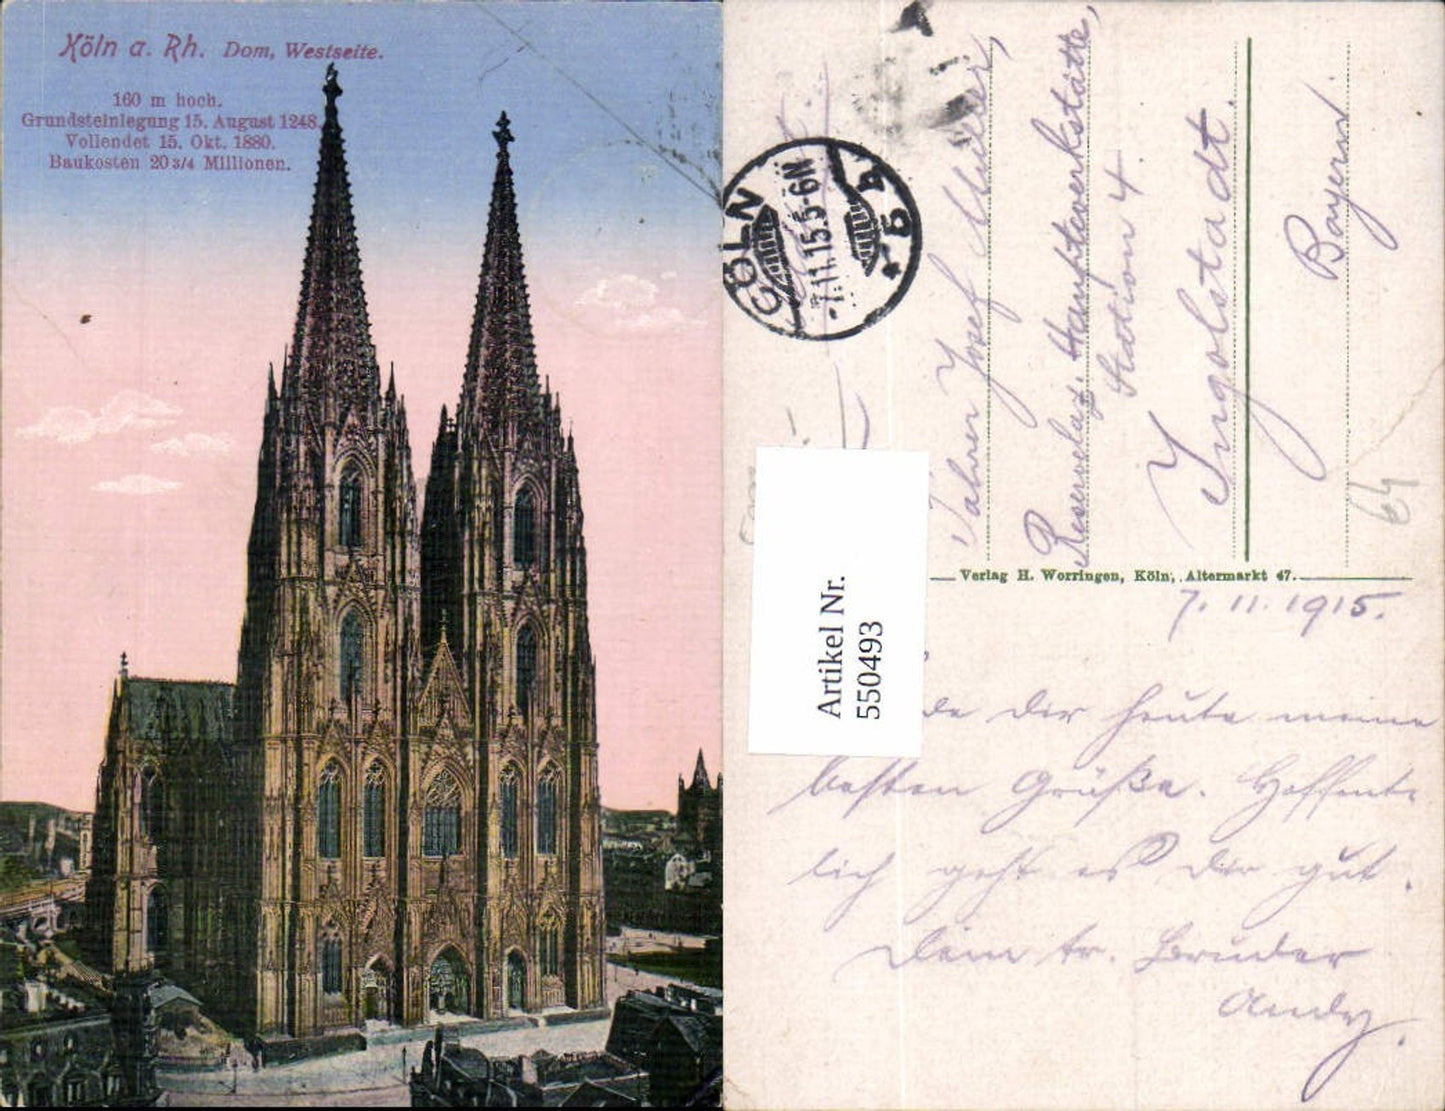 Köln a. Rh. Dom, Westseite.
160 m hoch.
Grundsteinlegung 15. August 1248.
Vollendet 15. Okt. 1880.
Baukosten 20 3/4 Millionen.
CÖLN
-7.11.15.5-6N
* 5 a
Josef Müller,
Reservelaz. Hauptwerkstätte,
Station 4.
Ingolstadt.
Bayern.
64
Verlag H. Worringen, Köln, Altermarkt 47.
Artikel Nr.
550493
7. 11. 1915.
de Dir heute meine
besten Grüße. Hoffent-
lich geht es Dir gut.
Dein tr. Bruder
Andr.